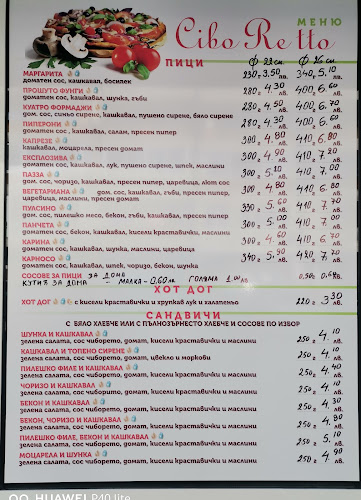 МЕНЮ
Cibo Re tto
ПИЦИ Ф 22 см. Ф 26 см.
МАРГАРИТА 230г 3.50 лв. 340г 5.10 лв.
доматен сос, кашкавал, босилек
ПРОШУТО ФУНГИ 280г 4.30 лв. 400г 6.60 лв.
доматен сос, кашкавал, шунка, гъби
КУАТРО ФОРМАДЖИ 280г 4.50 лв. 400г 6.70 лв.
дом. сос, синьо сирене, кашкавал, пушено сирене, бяло сирене
ПИПЕРОНИ 280г 4.30 лв. 400г 6.60 лв.
доматен сос, кашкавал, салам, пресен пипер
КАПРЕЗЕ 300г 4.80 лв. 410г 6.80 лв.
кашкавал, моцарела, пресен домат
ЕКСПЛОЗИВА 300г 4.90 лв. 410г 7.20 лв.
доматен сос, кашкавал, лук, пушено сирене, шпек, маслини
ПАЗЗА 300г 5.10 лв. 410г 7.00 лв.
дом. сос, чоризо, кашкавал, пресен пипер, царевица, лют сос
ВЕГЕТАРИАНА дом. сос, кашкавал, гъби, пресен пипер, 300г 4.40 лв. 410г 6.80 лв.
царевица, маслини, пресен домат
ПУАСИНО 330г 5.60 лв. 410г 7.20 лв.
дом. сос, пилешко месо, бекон, гъби, кашкавал, пресен пипер
ПАНЧЕТА 300г 5.00 лв. 410г 7.20 лв.
доматен сос, бекон, кашкавал, кисели краставички, маслини
КАРИНА 300г 4.60 лв. 410г 6.70 лв.
доматен сос, кашкавал, шунка, маслини, царевица
КАРНОСО 340г 5.90 лв. 420г 7.70 лв.
доматен сос, кашкавал, шпек, чоризо, бекон, шунка
СОСОВЕ ЗА ПИЦИ ЗА ДОМА 0,50г 0.60 лв.
КУТИЯ ЗА ДОМА - МАЛКА - 0.60 лв. ГОЛЯМА 1.00 лв.
ХОТ ДОГ
ХОТ ДОГ с кисели краставички и хрупкав лук и халапеньо 220г 3.30 лв.
САНДВИЧИ
С БЯЛО ХЛЕБЧЕ ИЛИ С ПЪЛНОЗЪРНЕСТО ХЛЕБЧЕ И СОСОВЕ ПО ИЗБОР
ШУНКА И КАШКАВАЛ 250г 4.10 лв.
зелена салата, сос чиборето, домат, кисели краставички и маслини
КАШКАВАЛ И ТОПЕНО СИРЕНЕ 250г 4.10 лв.
зелена салата, сос чиборето, домат, цвекло и моркови
ПИЛЕШКО ФИЛЕ И КАШКАВАЛ 250г 4.40 лв.
зелена салата, сос чиборето, домат, кисели краставички и маслини
ЧОРИЗО И КАШКАВАЛ 250г 4.10 лв.
зелена салата, сос чиборето, домат, кисели краставички и маслини
БЕКОН И КАШКАВАЛ 250г 4.30 лв.
зелена салата, сос чиборето, домат, кисели краставички и маслини
БЕКОН, ЧОРИЗО И КАШКАВАЛ 250г 4.90 лв.
зелена салата, сос чиборето, домат, кисели краставички и маслини
ПИЛЕШКО ФИЛЕ, БЕКОН И КАШКАВАЛ 250г 5.10 лв.
зелена салата, сос чиборето, домат, кисели краставички и маслини
МОЦАРЕЛА И ШУНКА 250г 4.90 лв.
зелена салата, сос чиборето, домат, кисели краставички и маслини
HUAWEI P40 lite